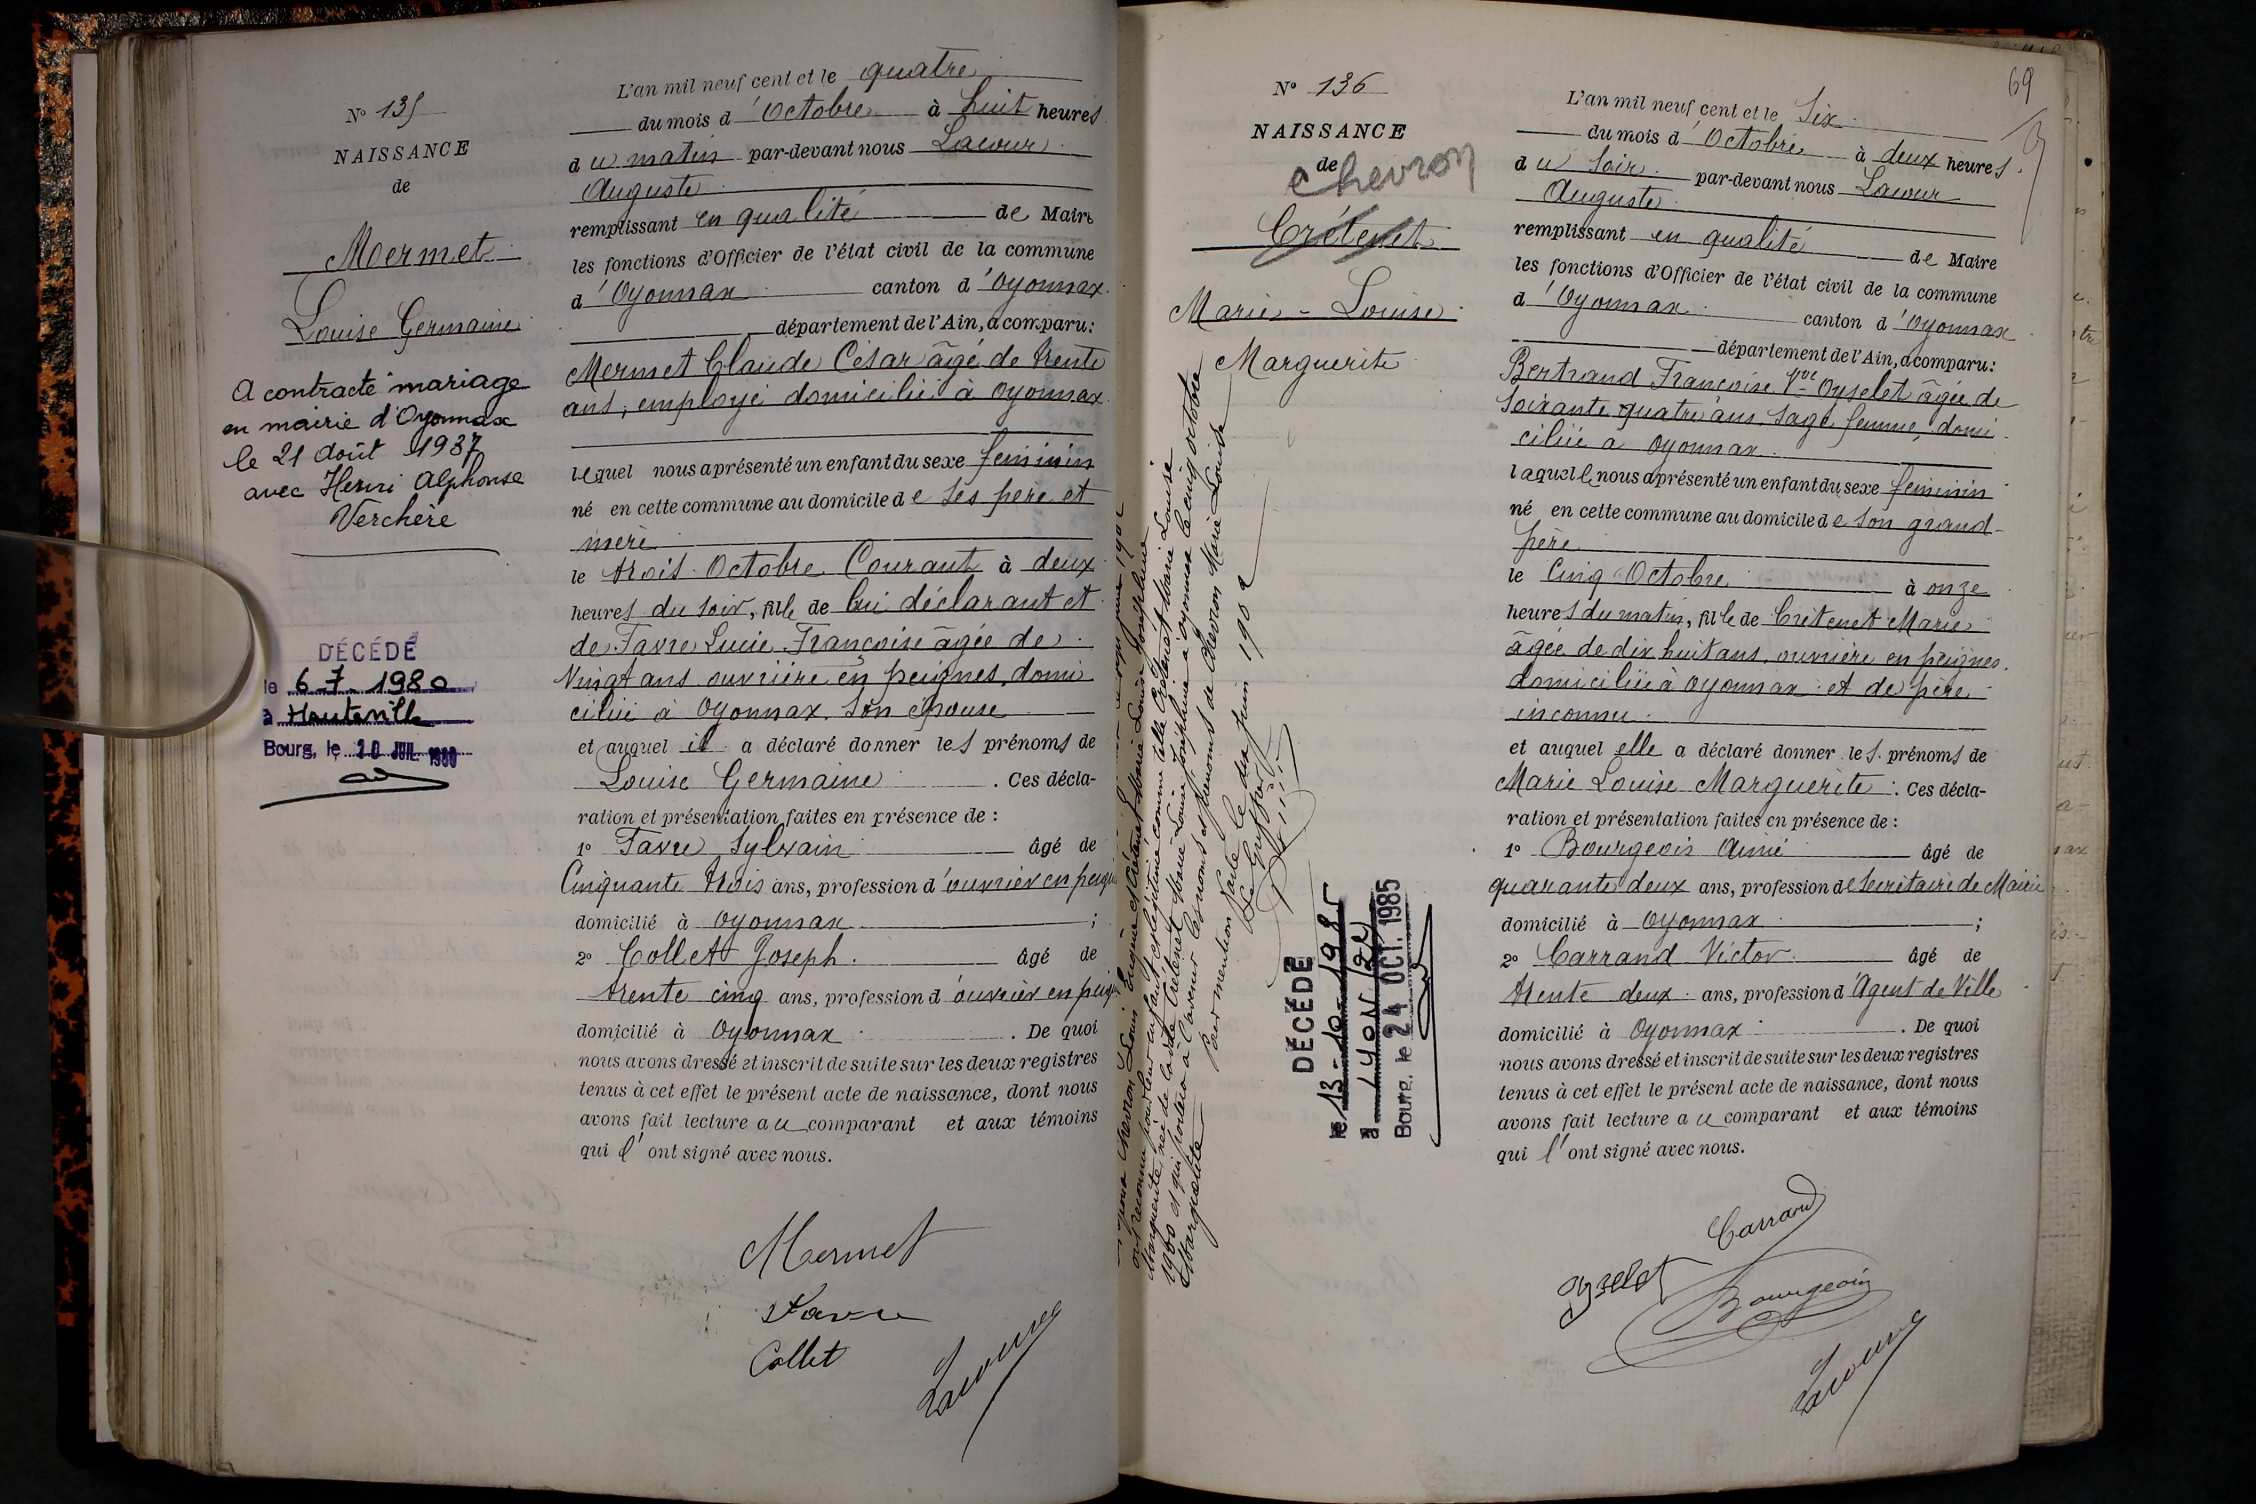 N° 135
NAISSANCE
de
Mermet
Louise Germaine
A contracté mariage
en mairie d'Oyonnax
le 21 août 1937
avec Henri Alphonse
Verchère
DÉCÉDÉ
le 6-7-1980
à Hauteville
Bourg, le 10 JUIL. 1980
L'an mil neuf cent et le quatre
du mois d'Octobre à huit heures
du matin par-devant nous Lacour
Auguste
remplissant en qualité de Maire
les fonctions d'Officier de l'état civil de la commune
d'Oyonnax canton d'Oyonnax
département de l'Ain, a comparu:
Mermet Claude César âgé de trente
ans, employé domicilié à Oyonnax
lequel nous a présenté un enfant du sexe féminin
né en cette commune au domicile de ses père et
mère
le trois Octobre Courant à deux
heures du soir, fille de lui déclarant et
de Favre Lucie Françoise âgée de
Vingt ans ouvrière en peignes, domi
ciliée à Oyonnax. Son épouse
et auquel il a déclaré donner les prénoms de
Louise Germaine. Ces décla-
ration et présentation faites en présence de :
1° Favre Sylvain âgé de
Cinquante trois ans, profession d'ouvrier en peignes
domicilié à Oyonnax ;
2° Collet Joseph. âgé de
trente cinq ans, profession d'ouvrier en peignes
domicilié à Oyonnax. De quoi
nous avons dressé et inscrit de suite sur les deux registres
tenus à cet effet le présent acte de naissance, dont nous
avons fait lecture au comparant et aux témoins
qui l'ont signé avec nous.
Mermet
Favre
Collet
Lacour
N° 136
NAISSANCE
de
Chevron
Crétenet
Marie-Louise
Marguerite
Chevron Louis Eugène et Crétenet Marie Louise Joséphine
ont reconnu pour leur enfant et légitimé comme telle Crétenet Marie Louise
Marguerite née de la dite Crétenet Marie Louise Joséphine à Oyonnax le cinq octobre
1900 et qui portera à l'avenir les noms et prénoms de Chevron Marie Louise
Marguerite
Pour mention faite le dix juin 1902
Le Greffier
DÉCÉDÉ
le 13-10-1985
à LYON
Bourg, le 24 OCT. 1985
69
L'an mil neuf cent et le Six
du mois d'Octobre à deux heures
du soir par-devant nous Lacour
Auguste
remplissant en qualité de Maire
les fonctions d'Officier de l'état civil de la commune
d'Oyonnax canton d'Oyonnax
département de l'Ain, a comparu:
Bertrand Françoise Vve Oyselet âgée de
soixante quatre ans, sage femme, domi
ciliée à Oyonnax
laquelle nous a présenté un enfant du sexe féminin
né en cette commune au domicile de son grand-
père
le Cinq Octobre à onze
heures du matin, fille de Crétenet Marie
âgée de dix huit ans, ouvrière en peignes,
domiciliée à Oyonnax et de père
inconnu
et auquel elle a déclaré donner les prénoms de
Marie Louise Marguerite. Ces décla-
ration et présentation faites en présence de :
1° Bourgeois Aimé âgé de
quarante deux ans, profession de Secrétaire de Mairie
domicilié à Oyonnax ;
2° Carrand Victor âgé de
trente deux ans, profession d'Agent de Ville
domicilié à Oyonnax. De quoi
nous avons dressé et inscrit de suite sur les deux registres
tenus à cet effet le présent acte de naissance, dont nous
avons fait lecture au comparant et aux témoins
qui l'ont signé avec nous.
Carrand
Oyselet
Bourgeois
Lacour